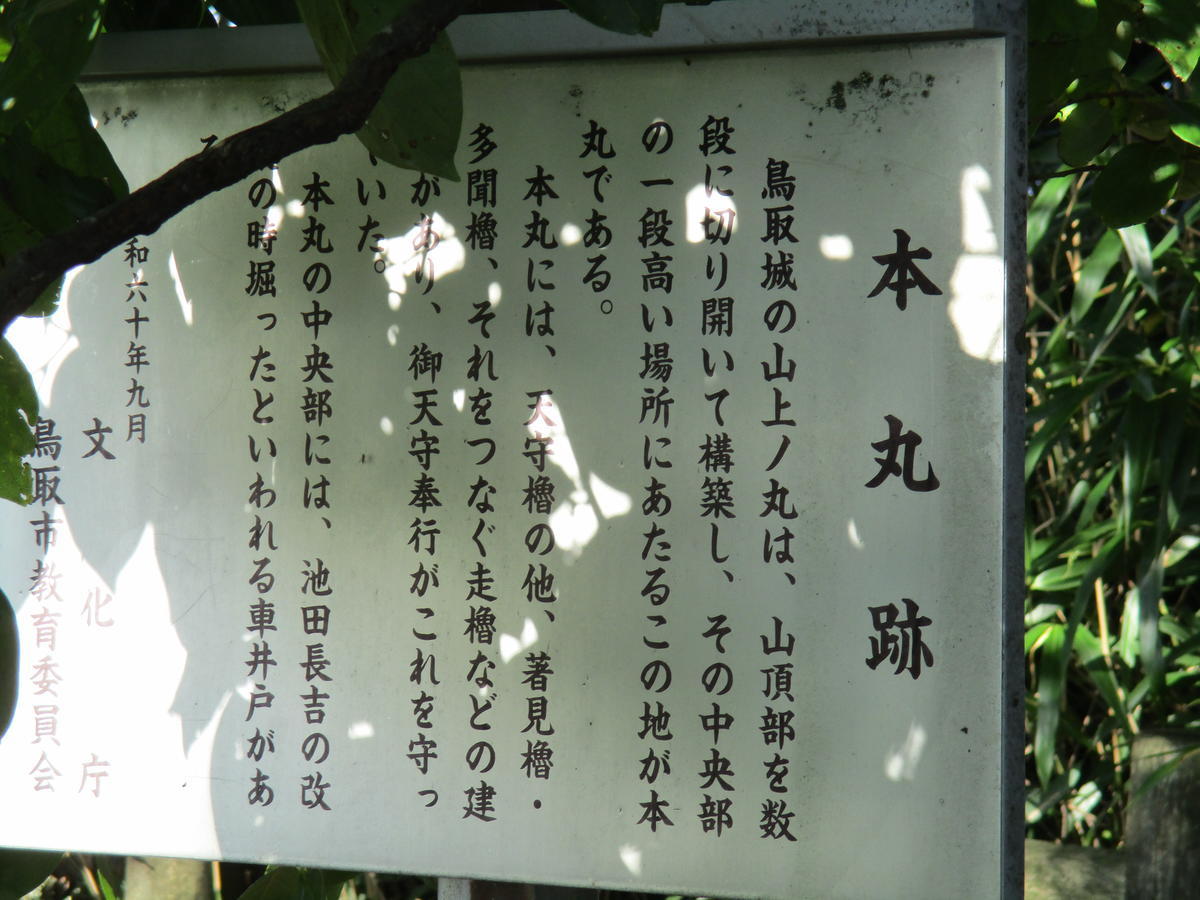 本丸跡
鳥取城の山上ノ丸は、山頂部を数
段に切り開いて構築し、その中央部
の一段高い場所にあたるこの地が本
丸である。
本丸には、天守櫓の他、著見櫓・
多聞櫓、それをつなぐ走櫓などの建
があり、御天守奉行がこれを守っ
いた。
本丸の中央部には、池田長吉の改
の時堀ったといわれる車井戸があ
和六十年九月
文化庁
鳥取市教育委員会